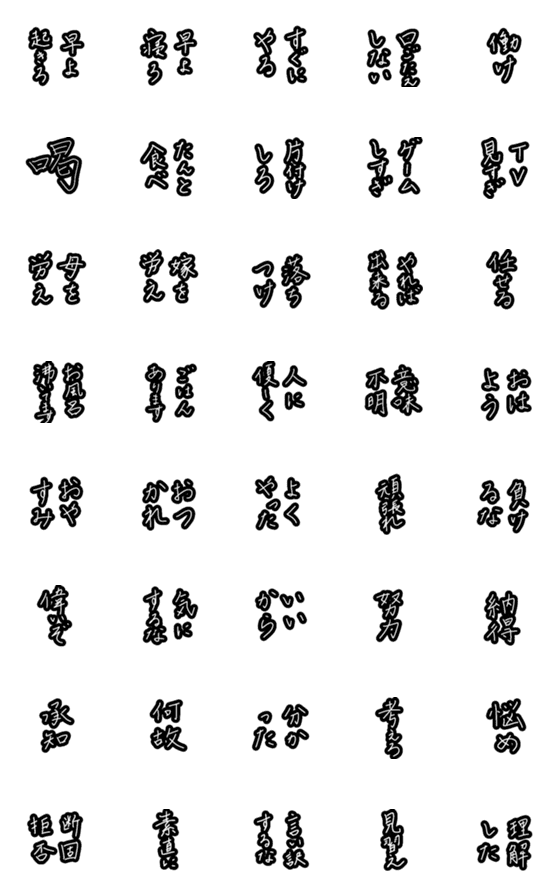 早よ起きろ
早よ寝ろ
すぐにやる
口ごたえしない
働け
喝
たんと食べ
片付けしろ
ゲームしすぎ
TV見すぎ
母を労え
嫁を労え
落ちつけ
やれば出来る
任せる
お風呂沸いてます
ごはんあります
人に優しく
意味不明
おはよう
おやすみ
おつかれ
よくやった
頑張れ
負けるな
偉いぞ
気にするな
いいから
努力
納得
承知
何故
分かった
考えろ
悩め
断固拒否
素直に
言い訳するな
見習え
理解した